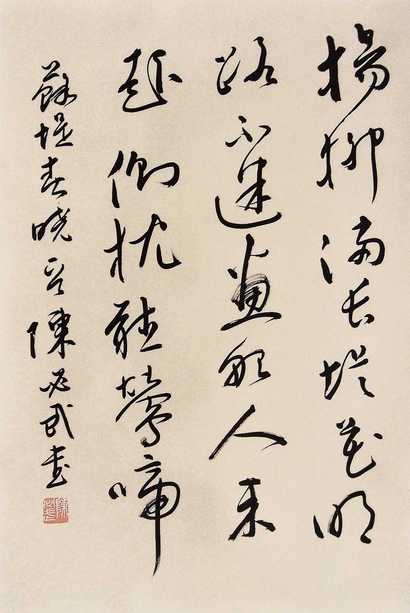 楊柳滿長堤花明
路不迷畫船人未
起側枕聽鶯啼
蘇堤春曉陳必武書